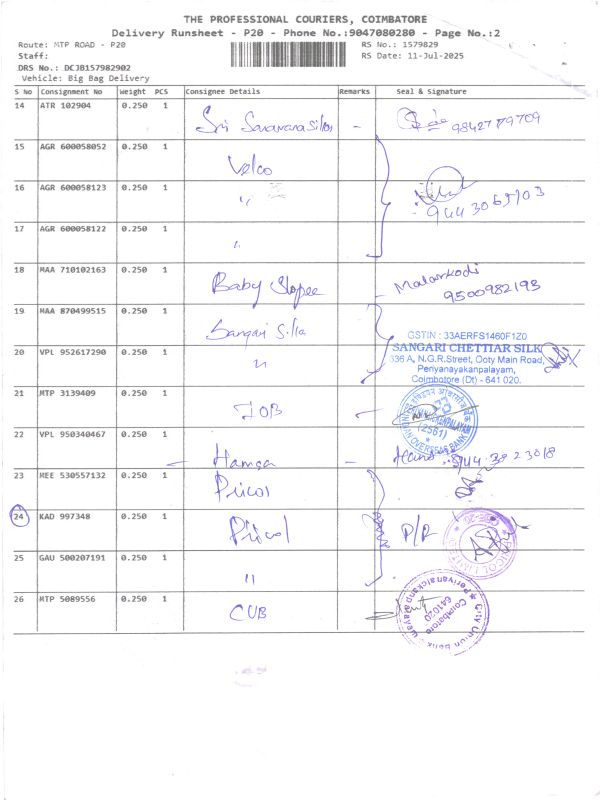 THE PROFESSIONAL COURIERS, COIMBATORE
Delivery Runsheet - P20 - Phone No.:9047080280 - Page No.:2
Route: MTP ROAD - P20 RS No.: 1579829
Staff: RS Date: 11-Jul-2025
DRS No.: DCJB157982902
Vehicle: Big Bag Delivery
S No Consignment No Weight PCS Consignee Details Remarks Seal & Signature
14 ATR 102904 0.250 1 Sri Saravana Silks - 9842779709
15 AGR 600058052 0.250 1 Velco
16 AGR 600058123 0.250 1 "
17 AGR 600058122 0.250 1 "
18 MAA 710102163 0.250 1 Baby Shopee - Malarkodi
9500982193
19 MAA 870499515 0.250 1 Sangari Silks
20 VPL 952617290 0.250 1 "
GSTIN : 33AERFS1460F1Z0
SANGARI CHETTIAR SILK
336 A, N.G.R.Street, Ooty Main Road,
Periyanayakanpalayam,
Coimbatore (Dt) - 641 020.
21 MTP 3139409 0.250 1 IOB -
(2561)
INDIAN OVERSEAS BANK
22 VPL 950340467 0.250 1 - Hamsa -
23 MEE 530557132 0.250 1 Pricol
24 KAD 997348 0.250 1 Pricol P/R
25 GAU 500207191 0.250 1 "
26 MTP 5089556 0.250 1 CUB
City Union Bank
Coimbatore
641020